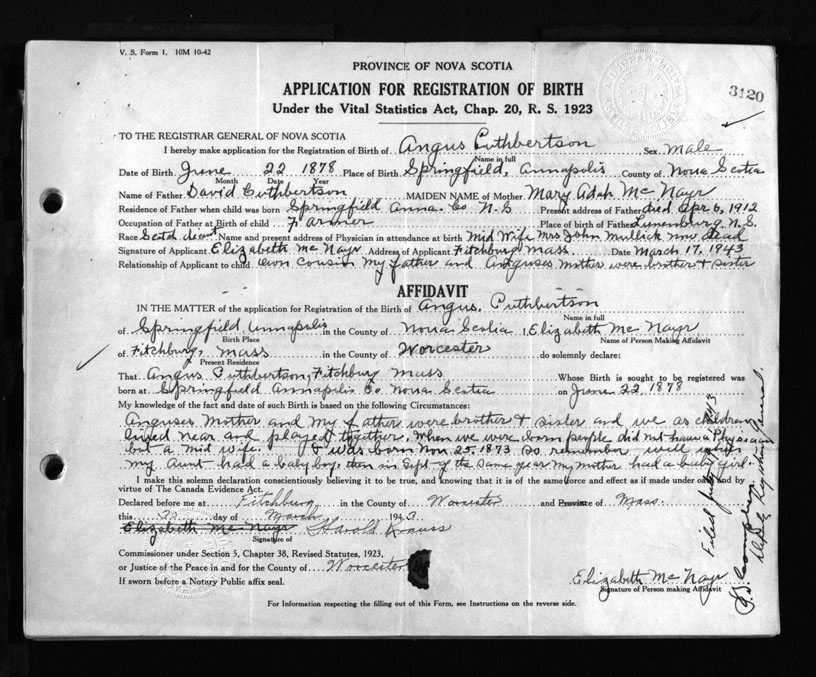 V. S. Form 1. 10M 10-42
PROVINCE OF NOVA SCOTIA
APPLICATION FOR REGISTRATION OF BIRTH
Under the Vital Statistics Act, Chap. 20, R. S. 1923
3120
TO THE REGISTRAR GENERAL OF NOVA SCOTIA
I hereby make application for the Registration of Birth of Angus Cuthbertson Sex Male
Name in full
Date of Birth June 22 1878 Place of Birth Springfield, Annapolis County of Nova Scotia
Month Date Year
Name of Father David Cuthbertson MAIDEN NAME of Mother Mary Adah Mc Nayr
Residence of Father when child was born Springfield Anna. Co N.S Present address of Father died Apr 6, 1912
Occupation of Father at Birth of child Farmer Place of birth of Father Lunenburg N.S.
Race Scotch Name and present address of Physician in attendance at birth Mid Wife Mrs John Mullick now dead
Signature of Applicant Elizabeth Mc Nayr Address of Applicant Fitchburg Mass Date March 17, 1943
Relationship of Applicant to child Own cousin My father and Anguses Mother were brother & sister
AFFIDAVIT
IN THE MATTER of the application for Registration of the Birth of Angus Cuthbertson
Name in full
of Springfield Annapolis in the County of Nova Scotia I, Elizabeth Mc Nayr
Birth Place Name of Person Making Affidavit
of Fitchburg, Mass in the County of Worcester do solemnly declare:
Present Residence
That Angus Cuthbertson, Fitchburg Mass Whose Birth is sought to be registered was
born at Springfield Annapolis Co Nova Scotia on June 22, 1878
My knowledge of the fact and date of such Birth is based on the following Circumstances:
Anguses Mother and my father were brother & sister and we as children
lived near and played together. When we were born people did not have a Physician
but a mid wife. I was born Nov 25, 1873 So remember well when
my Aunt had a baby boy, then in Sept of the same year my mother had a baby girl.
I make this solemn declaration conscientiously believing it to be true, and knowing that it is of the same force and effect as if made under oath and by
virtue of The Canada Evidence Act.
Declared before me at Fitchburg in the County of Worcester and Province of Mass.
this day of March 194
Elizabeth Mc Nayr Harold Krauss
Signature of
Commissioner under Section 5, Chapter 38, Revised Statutes, 1923,
or Justice of the Peace in and for the County of Worcester
If sworn before a Notary Public affix seal.
Elizabeth Mc Nayr
Signature of Person making Affidavit
For Information respecting the filling out of this Form, see Instructions on the reverse side.
Filed 1943